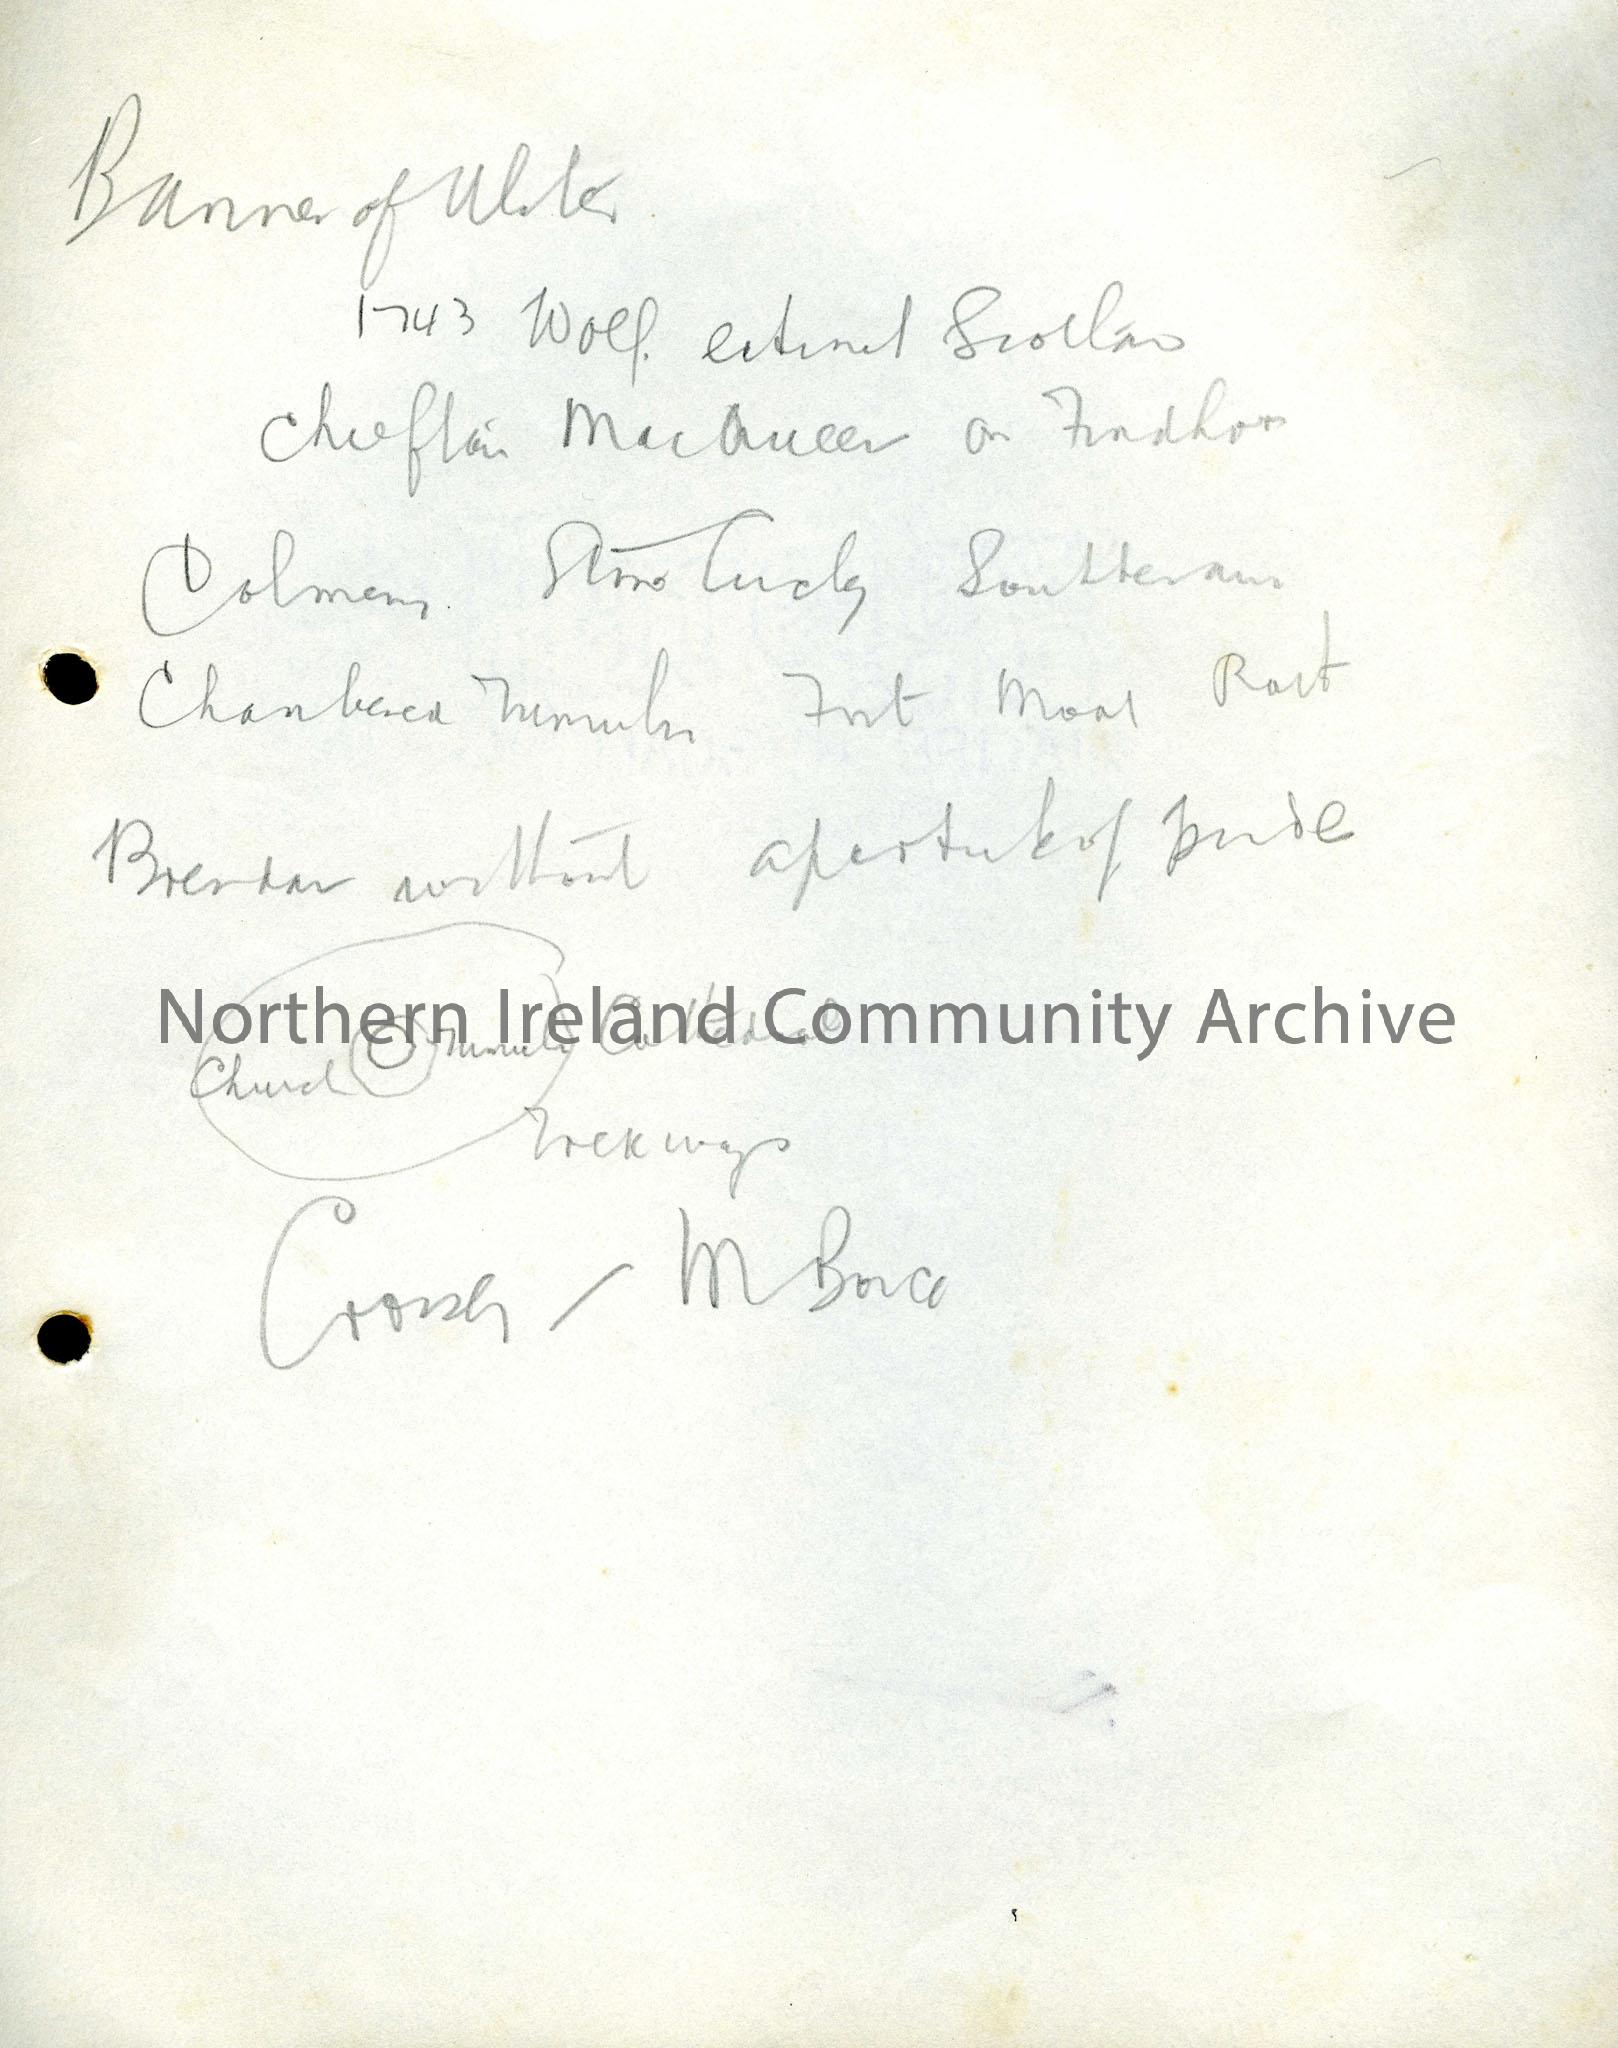 Banner of Ulster
1743 Wolf. extinct Scotland
Chieftain MacQueen on Findhorn
Dolmens. Stone Circles Souterrains
Chambered Tumulus Fort Moat Rath
Brendan without apostule of pride
Church Tumulus Cathedral
Northern Ireland Community Archive
Trekways
M